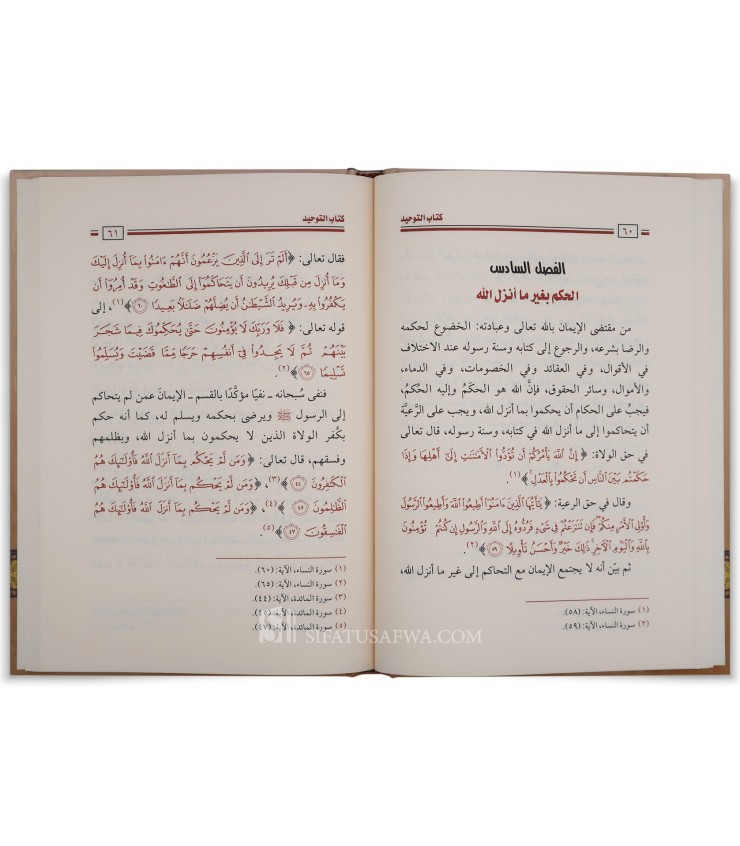 كتاب التوحيد
٦٠
الفصل السادس
الحكم بغير ما أنزل الله
من مقتضى الإيمان بالله تعالى وعبادته: الخضوع لحكمه
والرضا بشرعه، والرجوع إلى كتابه وسنة رسوله عند الاختلاف
في الأقوال، وفي العقائد وفي الخصومات، وفي الدماء،
والأموال، وسائر الحقوق، فإنَّ الله هو الحكَمُ وإليه الحُكمُ،
فيجبُ على الحكام أن يحكموا بما أنزل الله، ويجب على الرَّعيَّة
أن يتحاكموا إلى ما أنزل الله في كتابه، وسنة رسوله، قال تعالى
في حق الولاة: ﴿إِنَّ اللَّهَ يَأْمُرُكُمْ أَن تُؤَدُّوا۟ الْأَمَٰنَٰتِ إِلَىٰٓ أَهْلِهَا وَإِذَا
حَكَمْتُم بَيْنَ النَّاسِ أَن تَحْكُمُوا۟ بِالْعَدْلِ﴾(١).
وقال في حق الرعية: ﴿يَٰٓأَيُّهَا الَّذِينَ ءَامَنُوٓا۟ أَطِيعُوا۟ اللَّهَ وَأَطِيعُوا۟ الرَّسُولَ
وَأُو۟لِى الْأَمْرِ مِنكُمْ ۖ فَإِن تَنَٰزَعْتُمْ فِى شَىْءٍ فَرُدُّوهُ إِلَى اللَّهِ وَالرَّسُولِ إِن كُنتُمْ تُؤْمِنُونَ
بِاللَّهِ وَالْيَوْمِ الْءَاخِرِ ۚ ذَٰلِكَ خَيْرٌ وَأَحْسَنُ تَأْوِيلًا ٥٩﴾(٢).
ثم بيّن أنه لا يجتمع الإيمان مع التحاكم إلى غير ما أنزل الله،
(١) سورة النساء، الآية: (٥٨).
(٢) سورة النساء، الآية: (٥٩).
كتاب التوحيد
٦١
فقال تعالى: ﴿أَلَمْ تَرَ إِلَى الَّذِينَ يَزْعُمُونَ أَنَّهُمْ ءَامَنُوا۟ بِمَآ أُنزِلَ إِلَيْكَ
وَمَآ أُنزِلَ مِن قَبْلِكَ يُرِيدُونَ أَن يَتَحَاكَمُوٓا۟ إِلَى الطَّٰغُوتِ وَقَدْ أُمِرُوٓا۟ أَن
يَكْفُرُوا۟ بِهِۦ وَيُرِيدُ الشَّيْطَٰنُ أَن يُضِلَّهُمْ ضَلَٰلًۢا بَعِيدًا ٦٠﴾(١)، إلى
قوله تعالى: ﴿فَلَا وَرَبِّكَ لَا يُؤْمِنُونَ حَتَّىٰ يُحَكِّمُوكَ فِيمَا شَجَرَ
بَيْنَهُمْ ثُمَّ لَا يَجِدُوا۟ فِىٓ أَنفُسِهِمْ حَرَجًا مِّمَّا قَضَيْتَ وَيُسَلِّمُوا۟
تَسْلِيمًا ٦٥﴾(٢).
فنفى سُبحانه ـ نفيًا مؤكَّدًا بالقسم ـ الإيمانَ عمن لم يتحاكم
إلى الرسول ﷺ ويرضى بحكمه ويسلم له، كما أنه حكم
بكُفر الولاة الذين لا يحكمون بما أنزل الله، وبظلمهم
وفسقهم، قال تعالى: ﴿وَمَن لَّمْ يَحْكُم بِمَآ أَنزَلَ اللَّهُ فَأُو۟لَٰٓئِكَ هُمُ
الْكَٰفِرُونَ ٤٤﴾(٣)، ﴿وَمَن لَّمْ يَحْكُم بِمَآ أَنزَلَ اللَّهُ فَأُو۟لَٰٓئِكَ هُمُ
الظَّٰلِمُونَ ٤٥﴾(٤)، ﴿وَمَن لَّمْ يَحْكُم بِمَآ أَنزَلَ اللَّهُ فَأُو۟لَٰٓئِكَ هُمُ
الْفَٰسِقُونَ ٤٧﴾(٥).
(١) سورة النساء، الآية: (٦٠).
(٢) سورة النساء، الآية: (٦٥).
(٣) سورة المائدة، الآية: (٤٤).
(٤) سورة المائدة، الآية: (٤٥).
(٥) سورة المائدة، الآية: (٤٧).
SIFATUSAFWA.COM